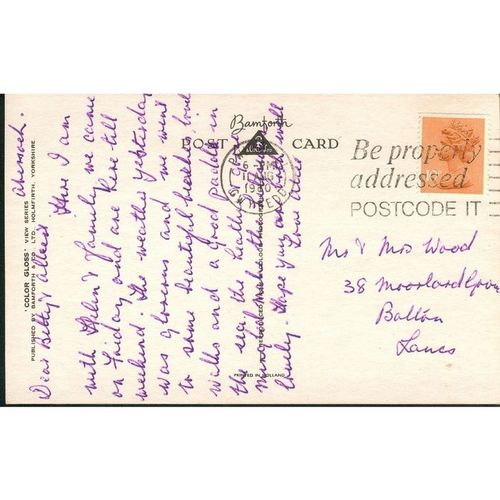 Abersoch.
Dear Betty & Albert Here I am
with Helen & family we came
on Friday and are here till
weekend. The weather yesterday
was glorious and we went
to some beautiful beaches lovely
walks and a good paddle in
the sea the heather & gorse
lovely. Hope you are all well
Love
"COLOR GLOSS" VIEW SERIES
PUBLISHED BY BAMFORTH & CO. LTD. HOLMFIRTH, YORKSHIRE
Bamforth
POST CARD
PRINTED IN HOLLAND
6-PM
1980
GWYNEDD
Be properly
addressed
POSTCODE IT
Mr & Mrs Wood
38 Moorland Grove
Bolton
Lancs